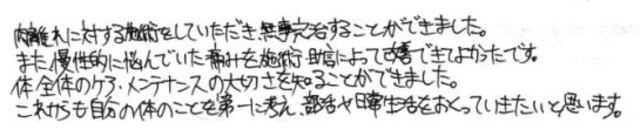 肉離れに対する施術をしていただき無事完治することができました。
また慢性的に悩んでいた痛みを施術・助言によって改善できてよかったです。
体全体のケア・メンテナンスの大切さを知ることができました。
これからも自分の体のことを第一に考え、部活や日常生活をおくっていきたいと思います。